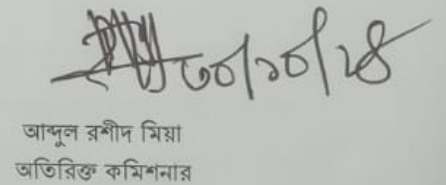 ৩০/১০/২৪
আব্দুল রশীদ মিয়া
অতিরিক্ত কমিশনার